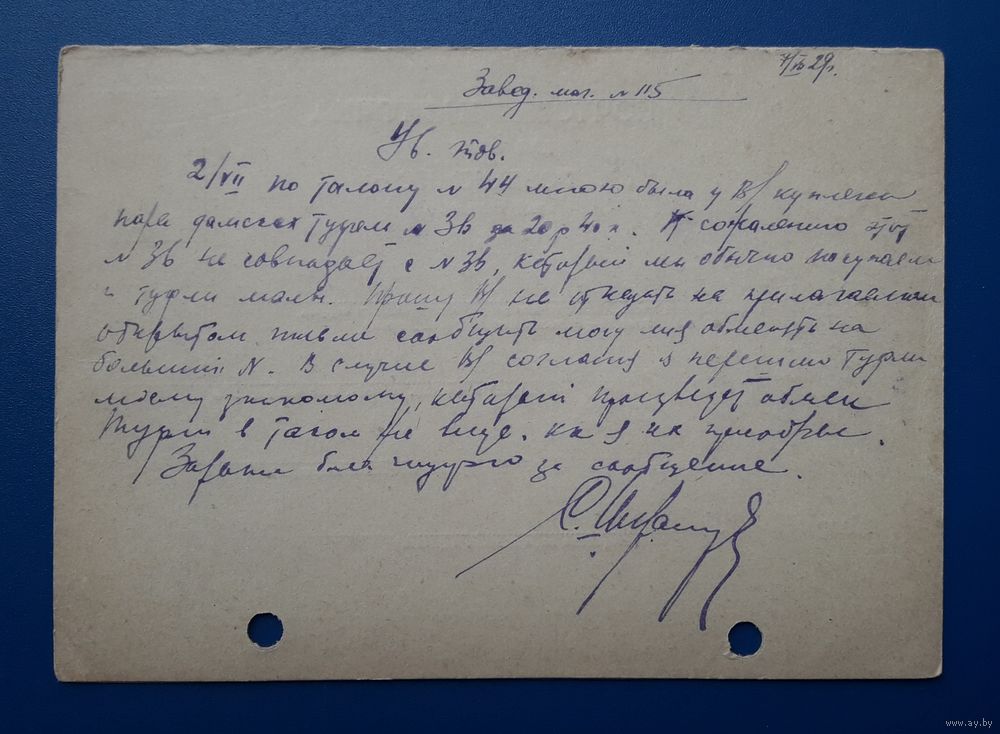 4/VII 29г.
Завед. маг. N 115
Ув. тов.
2/VII по талону N 44 мною была у В/ куплена
пара дамских туфель N 36 за 20 р 40 к. К сожалению этот
N 36 не совпадает с N 36, который мы обычно покупаем
и туфли малы. Прошу В/ не отказать на прилагаемом
открытом письме сообщить могу ли я обменять на
больший N. В случае В/ согласия я перешлю туфли
моему знакомому, который произведет обмен
Туфли в таком же виде, как я их приобрел.
Заранее благодарю за сообщение.
С.
www.ay.by